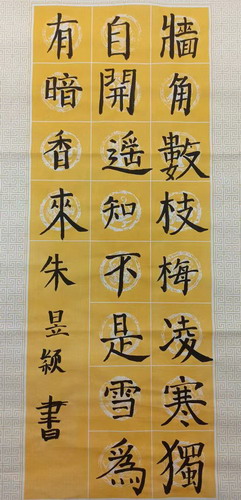 牆角數枝梅凌寒獨
自開遥知不是雪為
有暗香來朱昱颖書